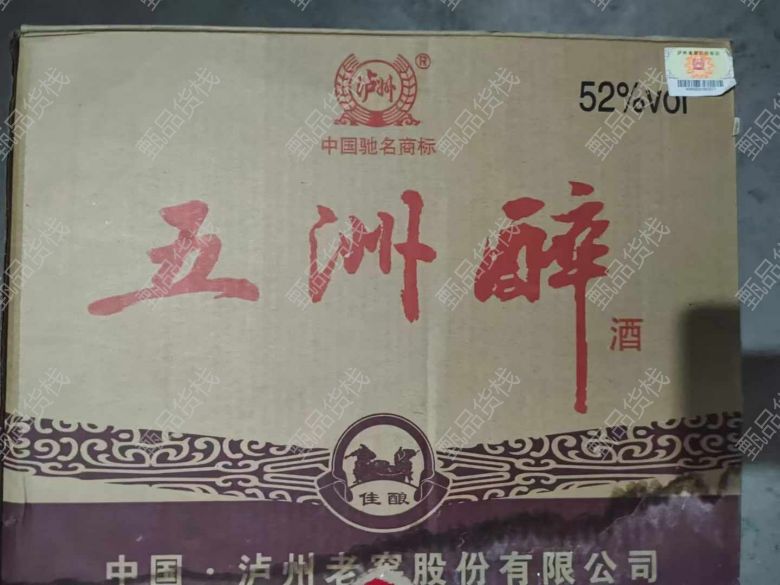 泸州
®
中国驰名商标
52%vol
五洲醉
酒
佳酿
中国·泸州老窖股份有限公司
甄品货栈